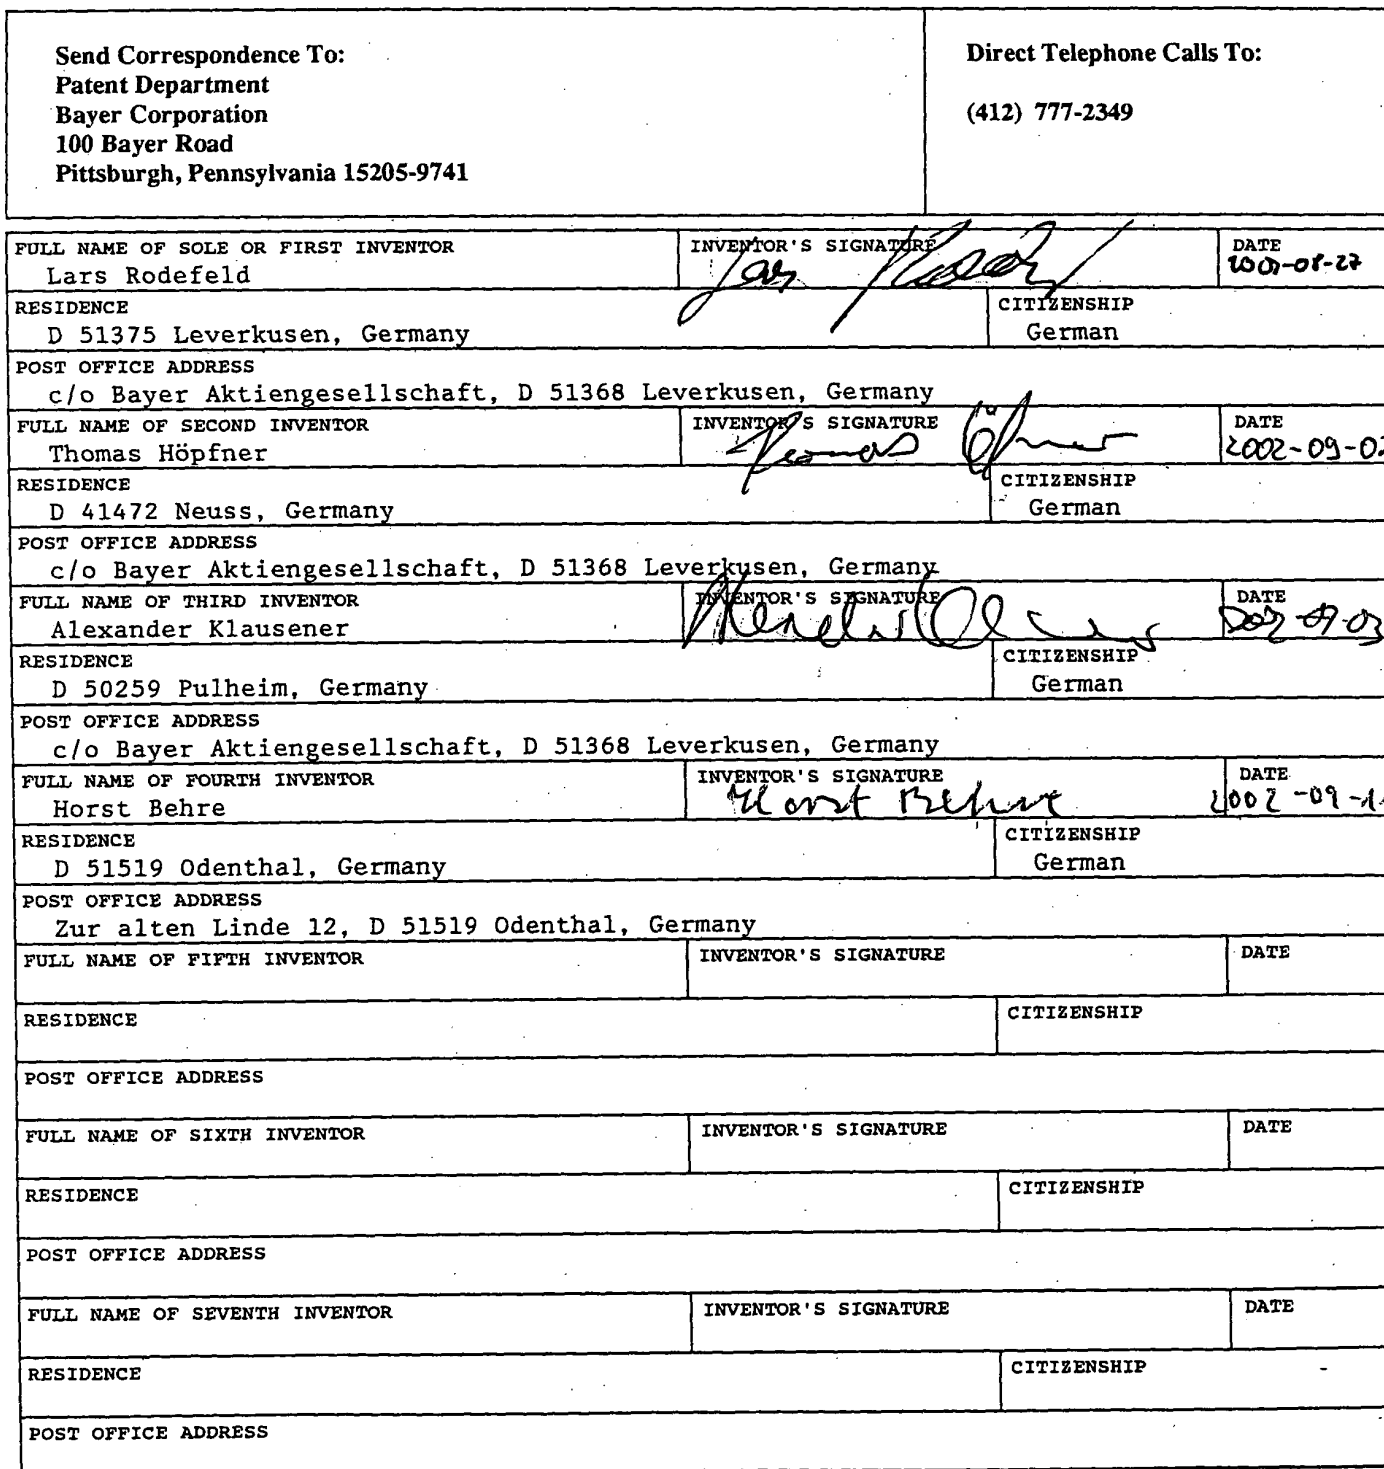 Send Correspondence To:
Patent Department
Bayer Corporation
100 Bayer Road
Pittsburgh, Pennsylvania 15205-9741
Direct Telephone Calls To:
(412) 777-2349
FULL NAME OF SOLE OR FIRST INVENTOR
Lars Rodefeld
INVENTOR'S SIGNATURE
DATE
RESIDENCE
D 51375 Leverkusen, Germany
CITIZENSHIP
German
POST OFFICE ADDRESS
c/o Bayer Aktiengesellschaft, D 51368 Leverkusen, Germany
FULL NAME OF SECOND INVENTOR
Thomas Höpfner
INVENTOR'S SIGNATURE
DATE
2002-09-0
RESIDENCE
D 41472 Neuss, Germany
CITIZENSHIP
German
POST OFFICE ADDRESS
c/o Bayer Aktiengesellschaft, D 51368 Leverkusen, Germany
FULL NAME OF THIRD INVENTOR
Alexander Klausener
INVENTOR'S SIGNATURE
DATE
RESIDENCE
D 50259 Pulheim, Germany
CITIZENSHIP
German
POST OFFICE ADDRESS
c/o Bayer Aktiengesellschaft, D 51368 Leverkusen, Germany
FULL NAME OF FOURTH INVENTOR
Horst Behre
INVENTOR'S SIGNATURE
Horst Behre
DATE
2002-09-1
RESIDENCE
D 51519 Odenthal, Germany
CITIZENSHIP
German
POST OFFICE ADDRESS
Zur alten Linde 12, D 51519 Odenthal, Germany
FULL NAME OF FIFTH INVENTOR
INVENTOR'S SIGNATURE
DATE
RESIDENCE
CITIZENSHIP
POST OFFICE ADDRESS
FULL NAME OF SIXTH INVENTOR
INVENTOR'S SIGNATURE
DATE
RESIDENCE
CITIZENSHIP
POST OFFICE ADDRESS
FULL NAME OF SEVENTH INVENTOR
INVENTOR'S SIGNATURE
DATE
RESIDENCE
CITIZENSHIP
POST OFFICE ADDRESS